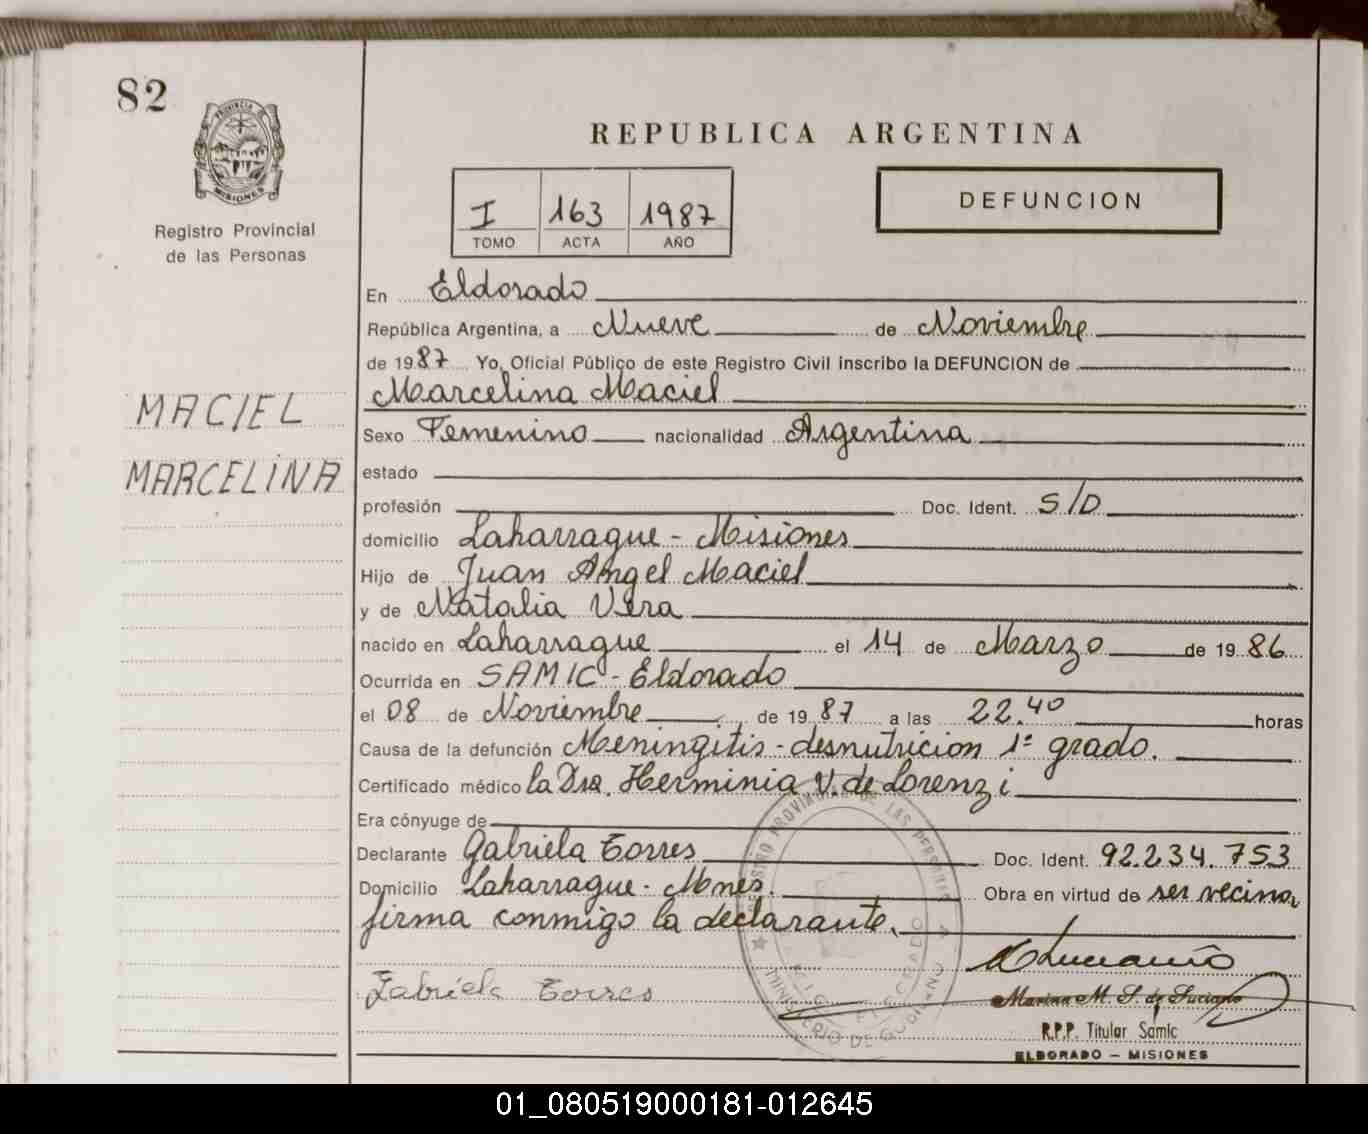 82
PROVINCIA
MISIONES
Registro Provincial
de las Personas
MACIEL
MARCELINA
REPUBLICA ARGENTINA
I 163 1987
TOMO ACTA AÑO
DEFUNCION
En Eldorado
República Argentina, a Nueve de Noviembre
de 1987 Yo, Oficial Público de este Registro Civil inscribo la DEFUNCION de
Marcelina Maciel
Sexo Femenino nacionalidad Argentina
estado
profesión Doc. Ident. S/D
domicilio Laharrague - Misiones
Hijo de Juan Angel Maciel
y de Natalia Vera
nacido en Laharrague el 14 de Marzo de 1986
Ocurrida en SAMIC - Eldorado
el 08 de Noviembre de 1987 a las 22.40 horas
Causa de la defunción Meningitis - desnutricion 1º grado.
Certificado médico la Dra. Herminia V. de Lorenzi
Era cónyuge de
Declarante Gabriela Torres Doc. Ident. 92.234.753
Domicilio Laharrague - Mnes. Obra en virtud de ser vecina,
firma conmigo la declarante.
Gabriela Torres
Marina M. S. de Luciano
R.P.P. Titular Samic
ELDORADO - MISIONES
MINISTERIO DE GOBIERNO
01_080519000181-012645